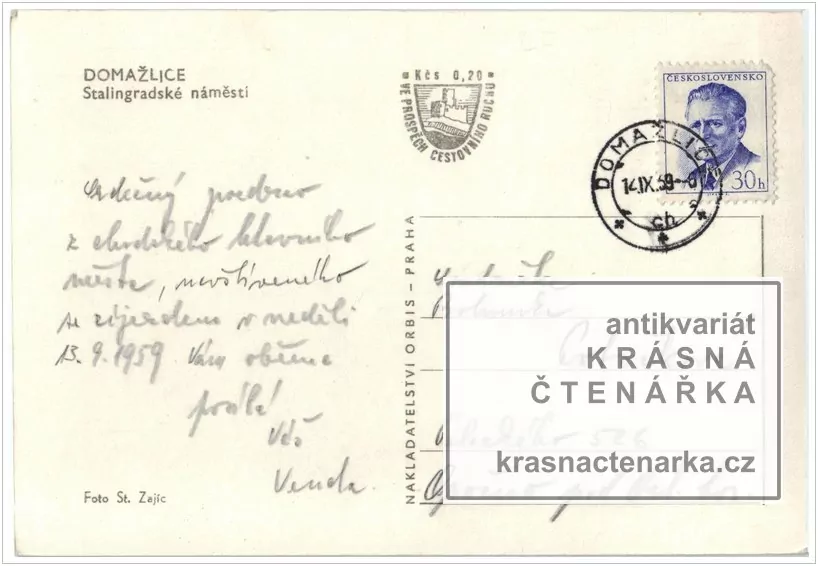 DOMAŽLICE
Stalingradské náměstí
Kčs 0,20
VE PROSPĚCH CESTOVNÍHO RUCHU
ČESKOSLOVENSKO
30h
DOMAŽLICE
14.IX.59
ch
Srdečný pozdrav
z chodského hlavního
města, navštíveného
se zájezdem v neděli
13.9.1959 Vám
Váš
Venda.
NAKLADATELSTVÍ ORBIS – PRAHA
526
antikvariát
KRÁSNÁ
ČTENÁŘKA
krasnactenarka.cz
Foto St. Zajíc